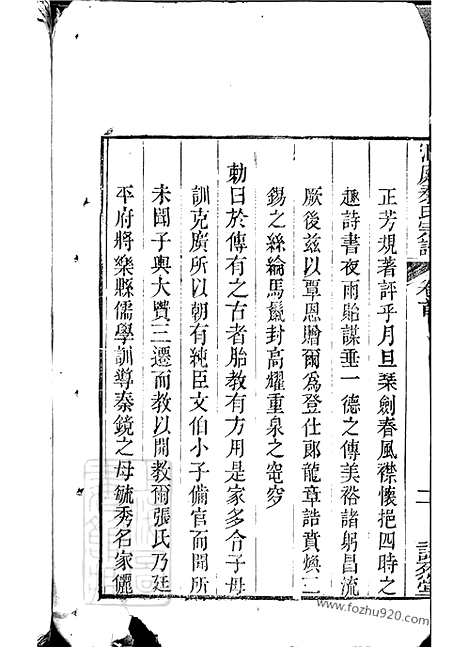 洞庭秦氏宗譜
卷首
二
正芳規著評乎月旦琹劍春風襟懷挹四時之
趣詩書夜雨貽謀垂一德之傳美裕諸躬昌流
厥後兹以覃恩贈爾爲登仕郎龍章誥賁煥二
錫之絲綸馬鬛封高耀重泉之窀穸
勅曰於傳有之古者胎教有方用是家多令子母
訓克廣所以朝有純臣文伯小子備官而聞所
未聞子輿大賢三遷而教以開教爾張氏乃延
平府將樂縣儒學訓導秦鏡之母毓秀名家儷
www.fozhu920.com